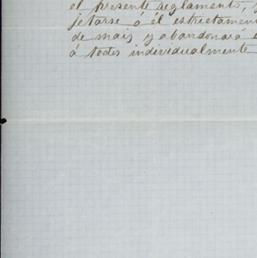 el presente reglamento,
jetarse á él estrictamen
de mais y abandonará
á todos individualmente